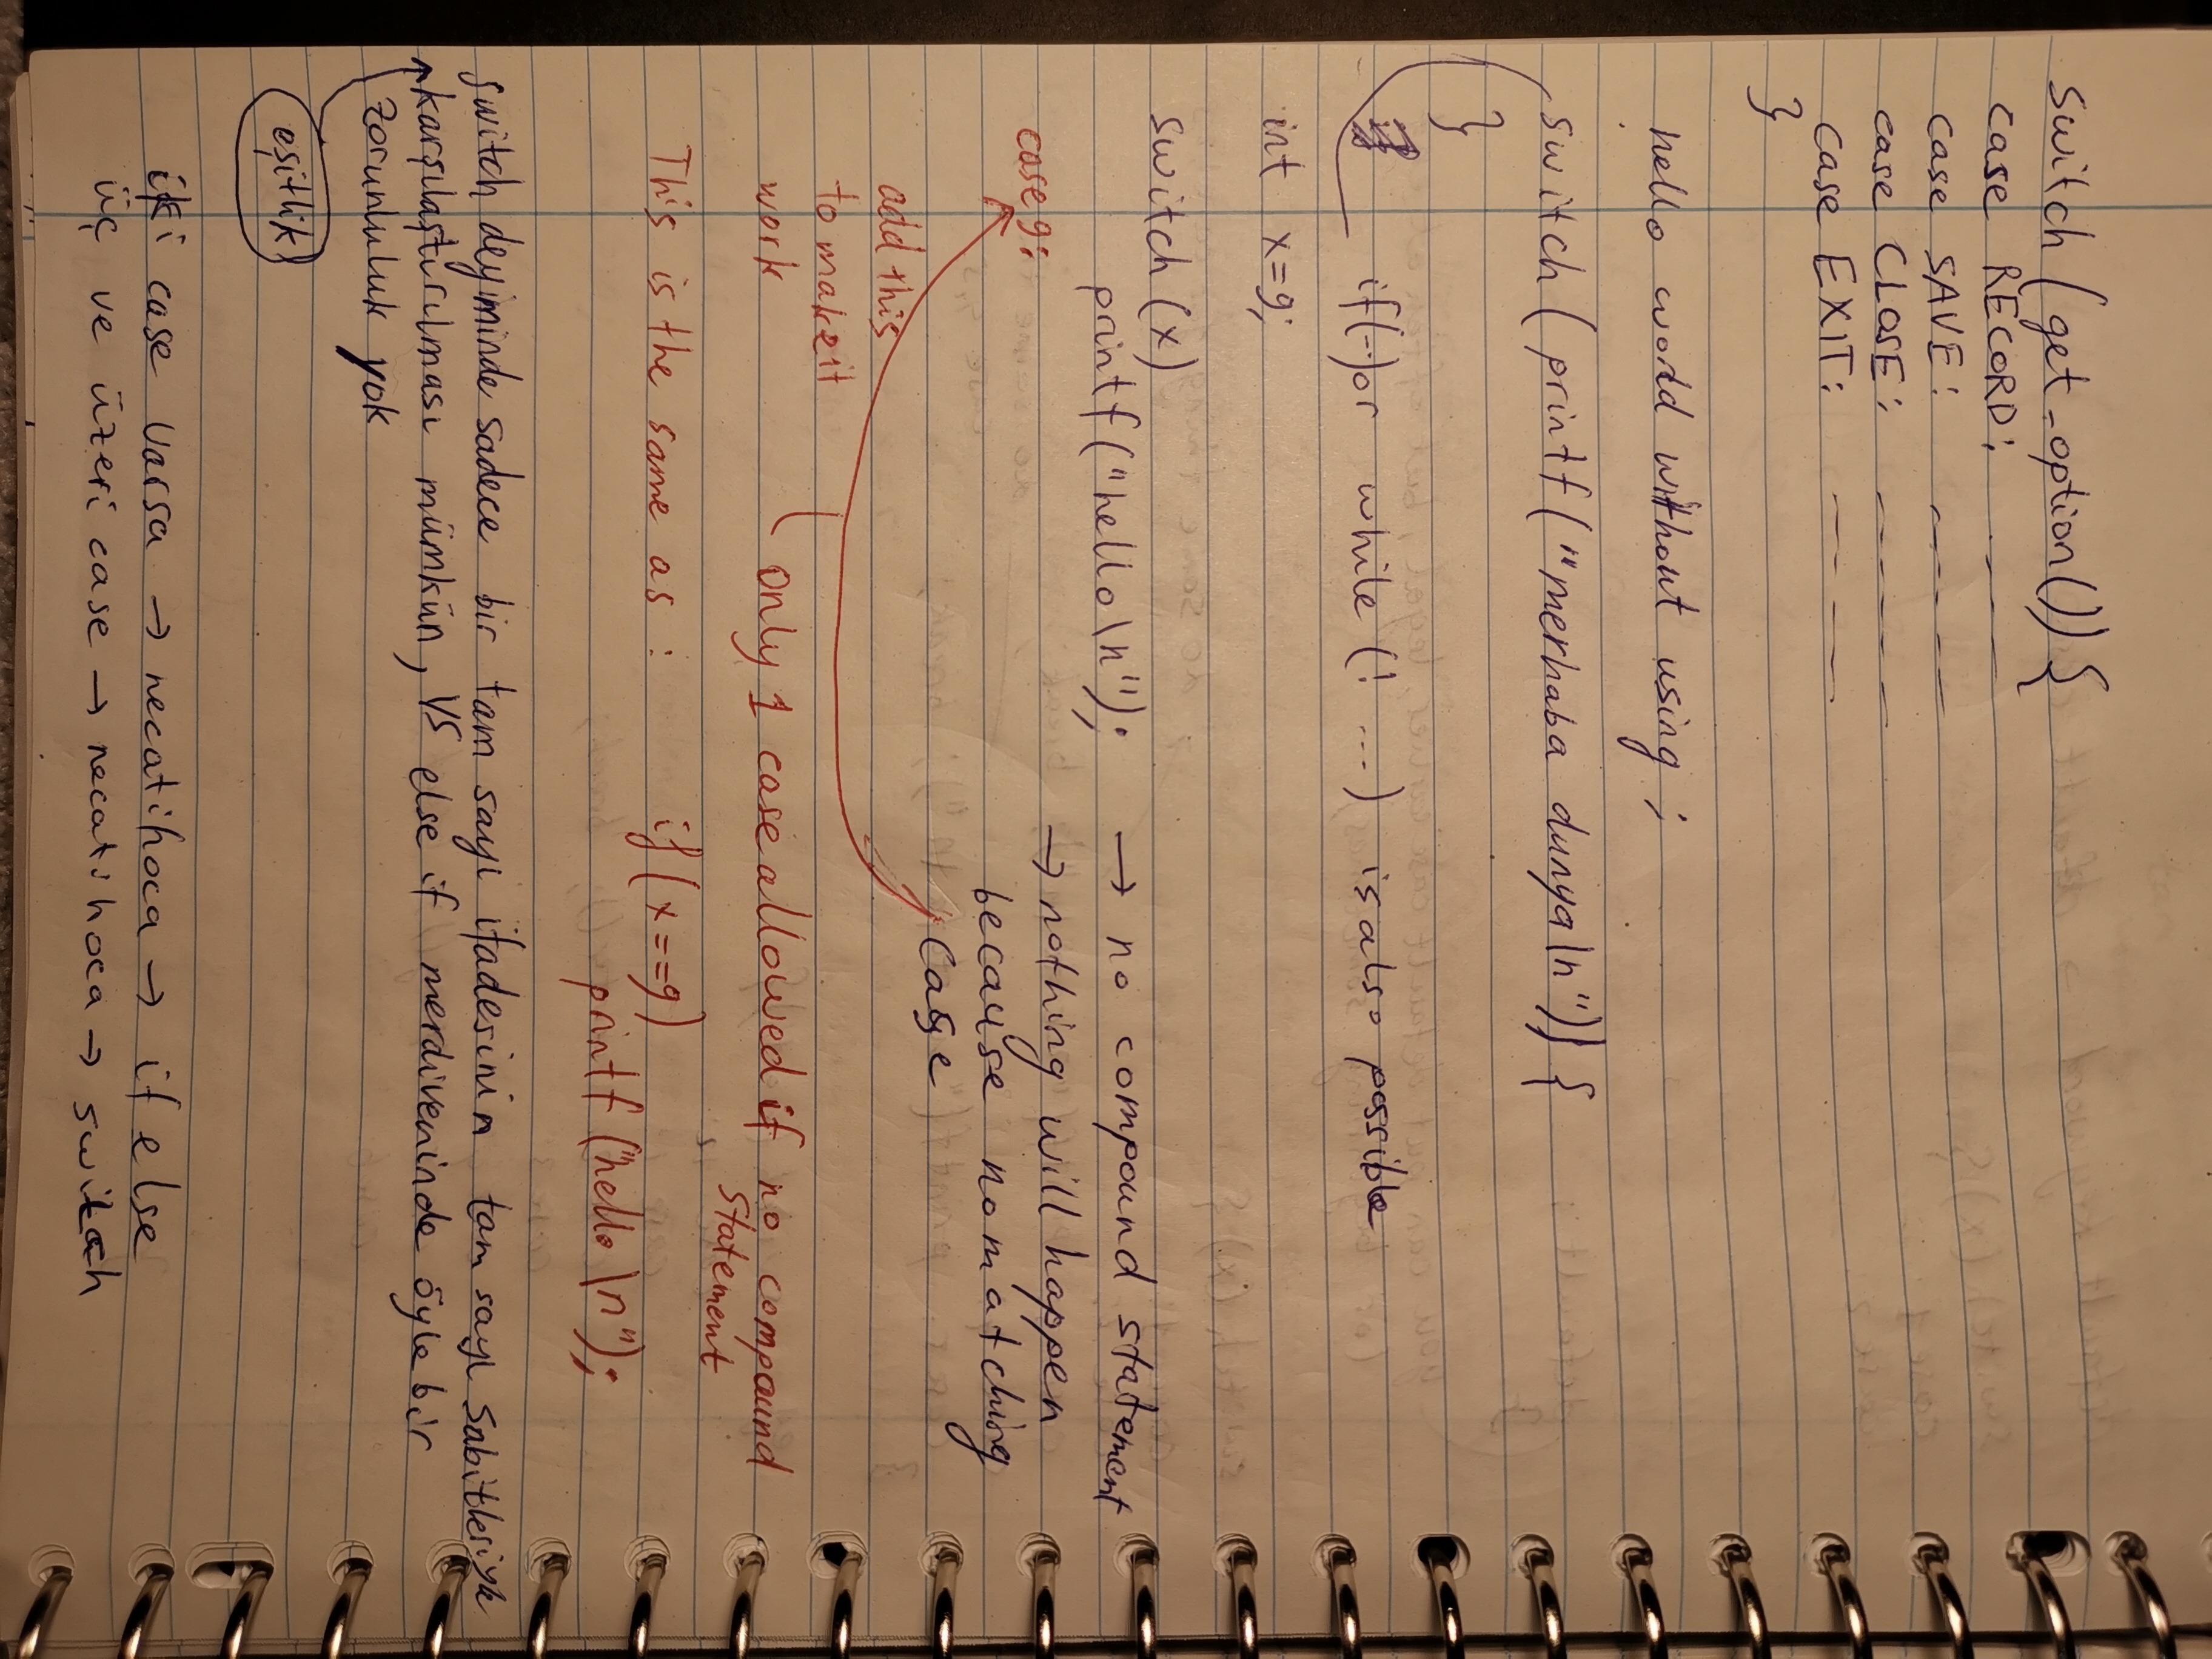 switch (get_option()) {
case RECORD: - - - -
case SAVE: - - - -
case CLOSE: - - - -
case EXIT: - - - -
}
hello world without using ;
switch ( printf ( "merhaba dunya\n")) {
}
if(--)or while (! ...) is also possible
int x=9;
switch (x)
printf("hello\n"); → no compound statement
case 9: → nothing will happen
because no matching
case
add this
to make it
work
only 1 case allowed if no compound
statement
This is the same as : if (x==9)
printf ("hello \n");
switch deyiminde sadece bir tam sayı ifadesinin tam sayı sabitleriyle
karşılaştırılması mümkün, VS else if merdiveninde öyle bir
zorunluluk yok
eşitlik
iki case varsa → necatihoca → if else
üç ve üzeri case → necati hoca → switch